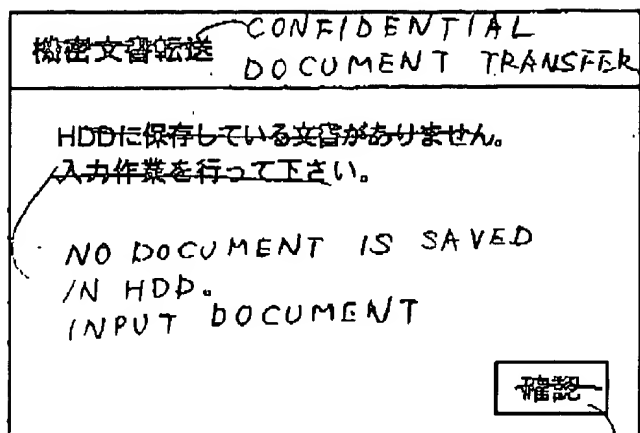 機密文書転送
CONFIDENTIAL
DOCUMENT TRANSFER
HDDに保存している文書がありません。
入力作業を行って下さい。
NO DOCUMENT IS SAVED
IN HDD.
INPUT DOCUMENT
確認